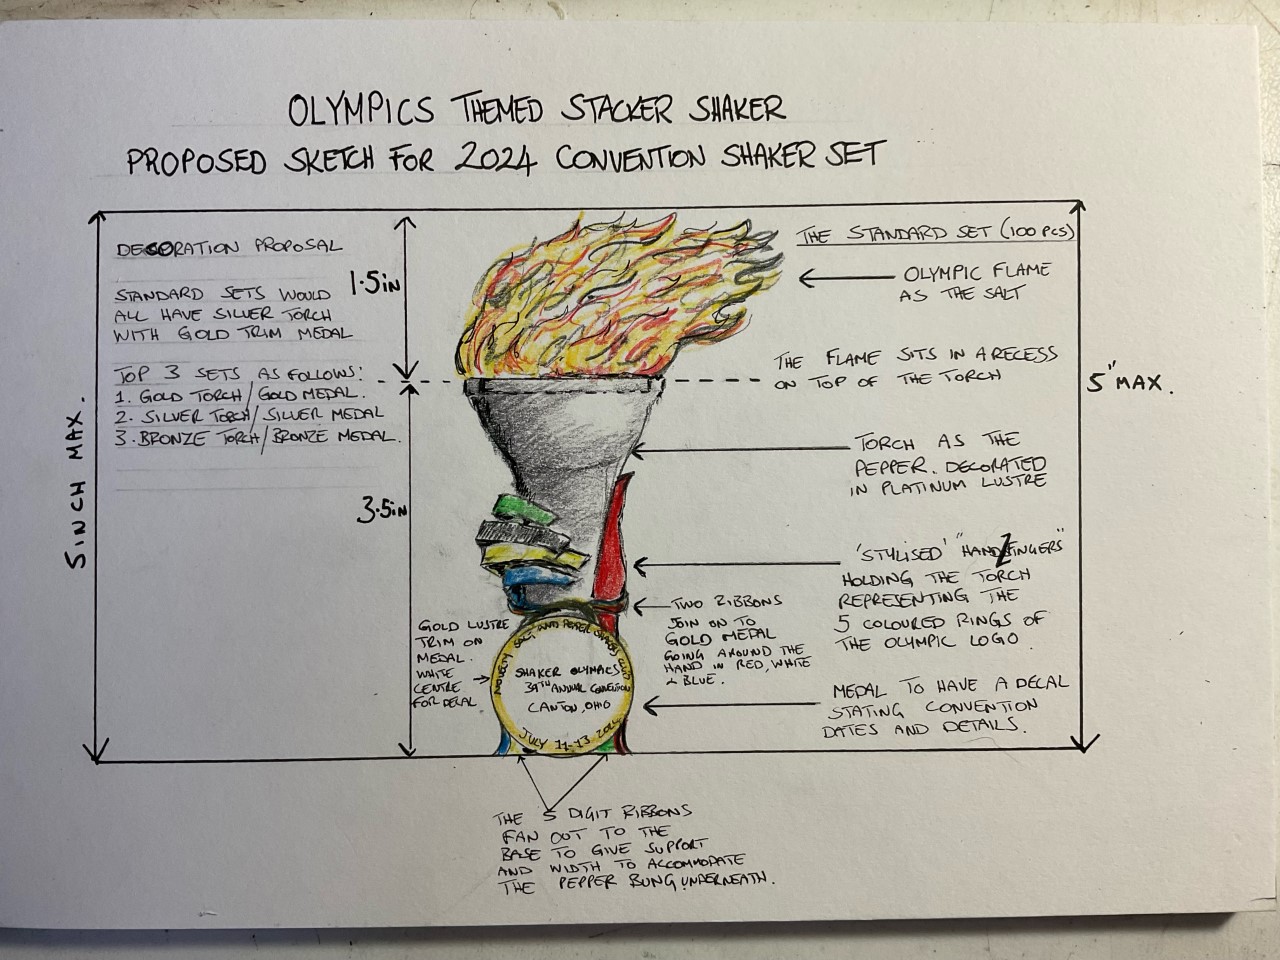 OLYMPICS THEMED STACKER SHAKER
PROPOSED SKETCH FOR 2024 CONVENTION SHAKER SET
DECORATION PROPOSAL
STANDARD SETS WOULD
ALL HAVE SILVER TORCH
WITH GOLD TRIM MEDAL
TOP 3 SETS AS FOLLOWS:
1. GOLD TORCH/GOLD MEDAL.
2. SILVER TORCH/SILVER MEDAL
3. BRONZE TORCH/BRONZE MEDAL.
5 INCH MAX.
1.5in
3.5in
THE STANDARD SET (100 PCS)
OLYMPIC FLAME
AS THE SALT
THE FLAME SITS IN A RECESS
ON TOP OF THE TORCH
5" MAX.
TORCH AS THE
PEPPER. DECORATED
IN PLATINUM LUSTRE
'STYLISED' "HAND/FINGERS"
HOLDING THE TORCH
REPRESENTING THE
5 COLOURED RINGS OF
THE OLYMPIC LOGO.
TWO RIBBONS
JOIN ON TO
GOLD MEDAL
GOING AROUND THE
HAND IN RED, WHITE
+ BLUE.
GOLD LUSTRE
TRIM ON
MEDAL.
WHITE
CENTRE
FOR DECAL
NOVELTY SALT AND PEPPER SHAKERS CLUB
SHAKER OLYMPICS
39TH ANNUAL CONVENTION
CANTON, OHIO
JULY 11-13 2024
MEDAL TO HAVE A DECAL
STATING CONVENTION
DATES AND DETAILS.
THE 5 DIGIT RIBBONS
FAN OUT TO THE
BASE TO GIVE SUPPORT
AND WIDTH TO ACCOMMODATE
THE PEPPER BUNG UNDERNEATH.